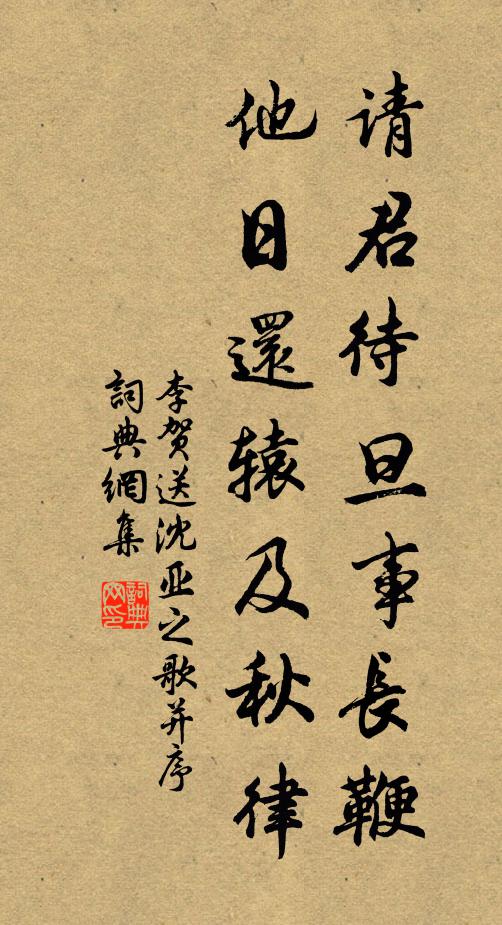 请君待旦事長鞭
他日還辕及秋律
李贺送沈亚之歌并序
詞典網集
詞典网印